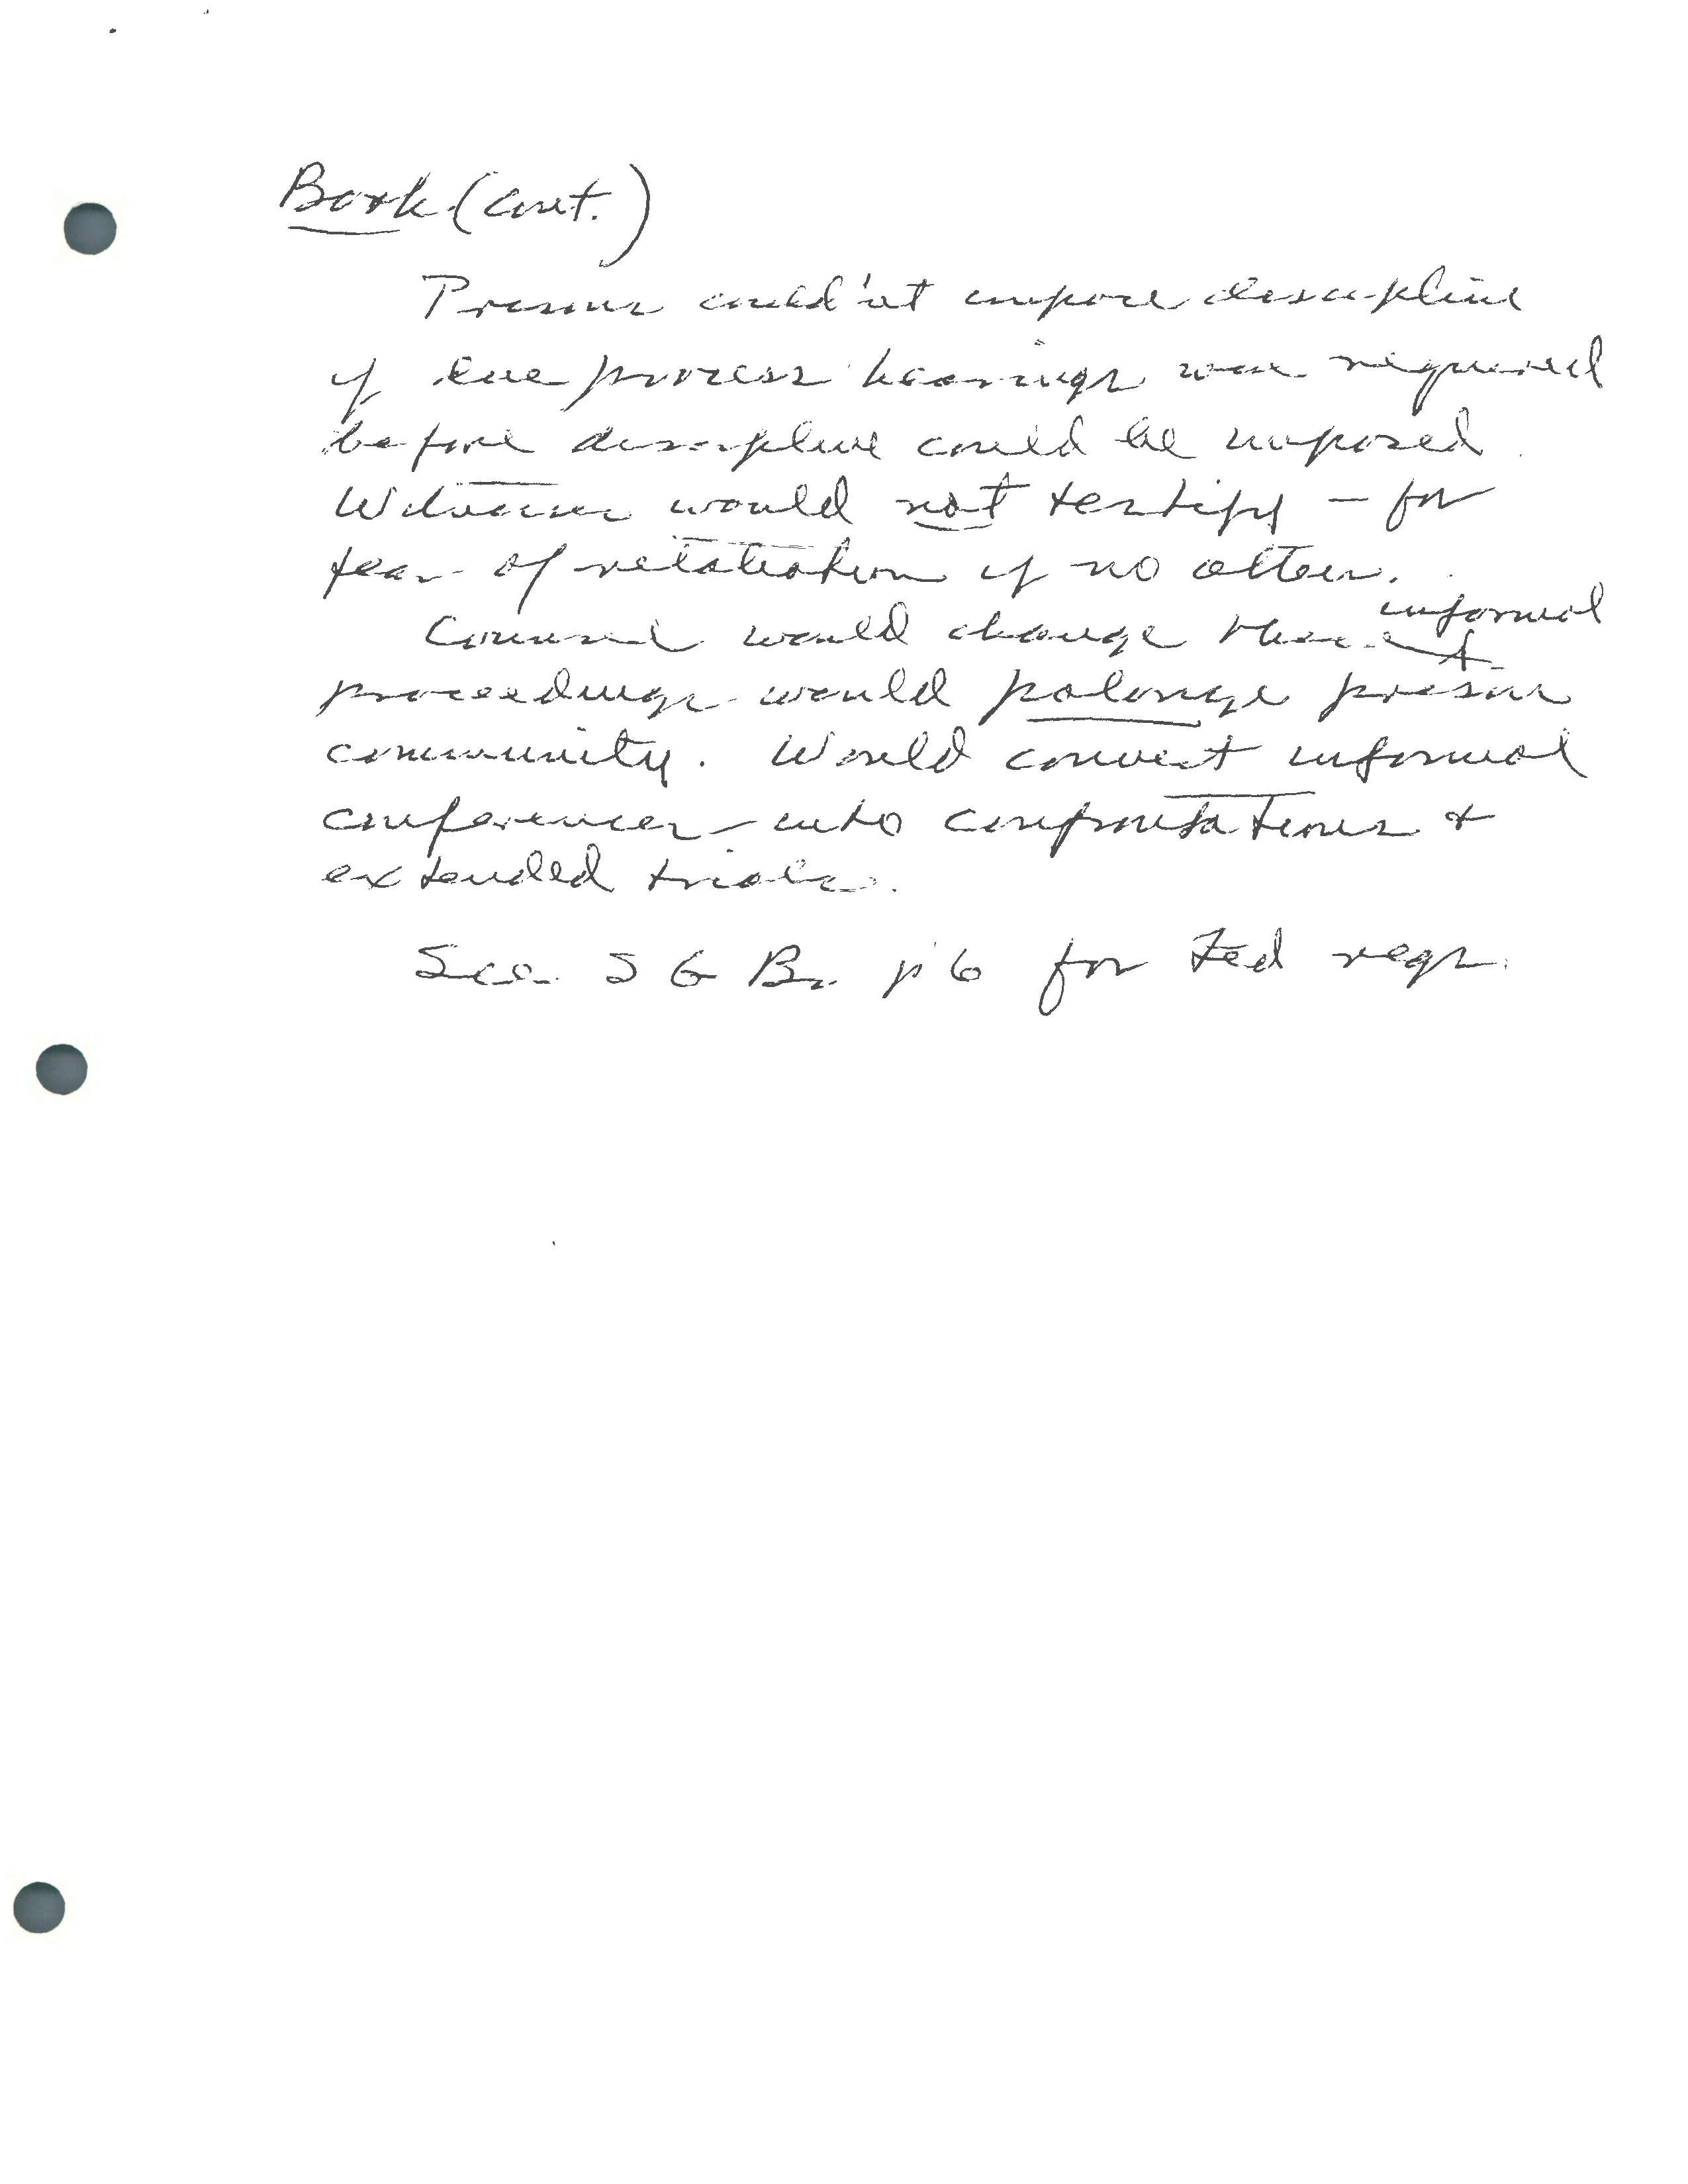 Bork (cont.)
Prisons could'nt impose discipline
if due process hearings were required
before discipline could be imposed.
Witnesses would not testify - for
fear of retaliation if no other.
Counsel would change these informal
proceedings would polonge prison
community. Would convert informal
conferences into confrontations &
extended trials.
See SG Br. p 6 for Fed regs.